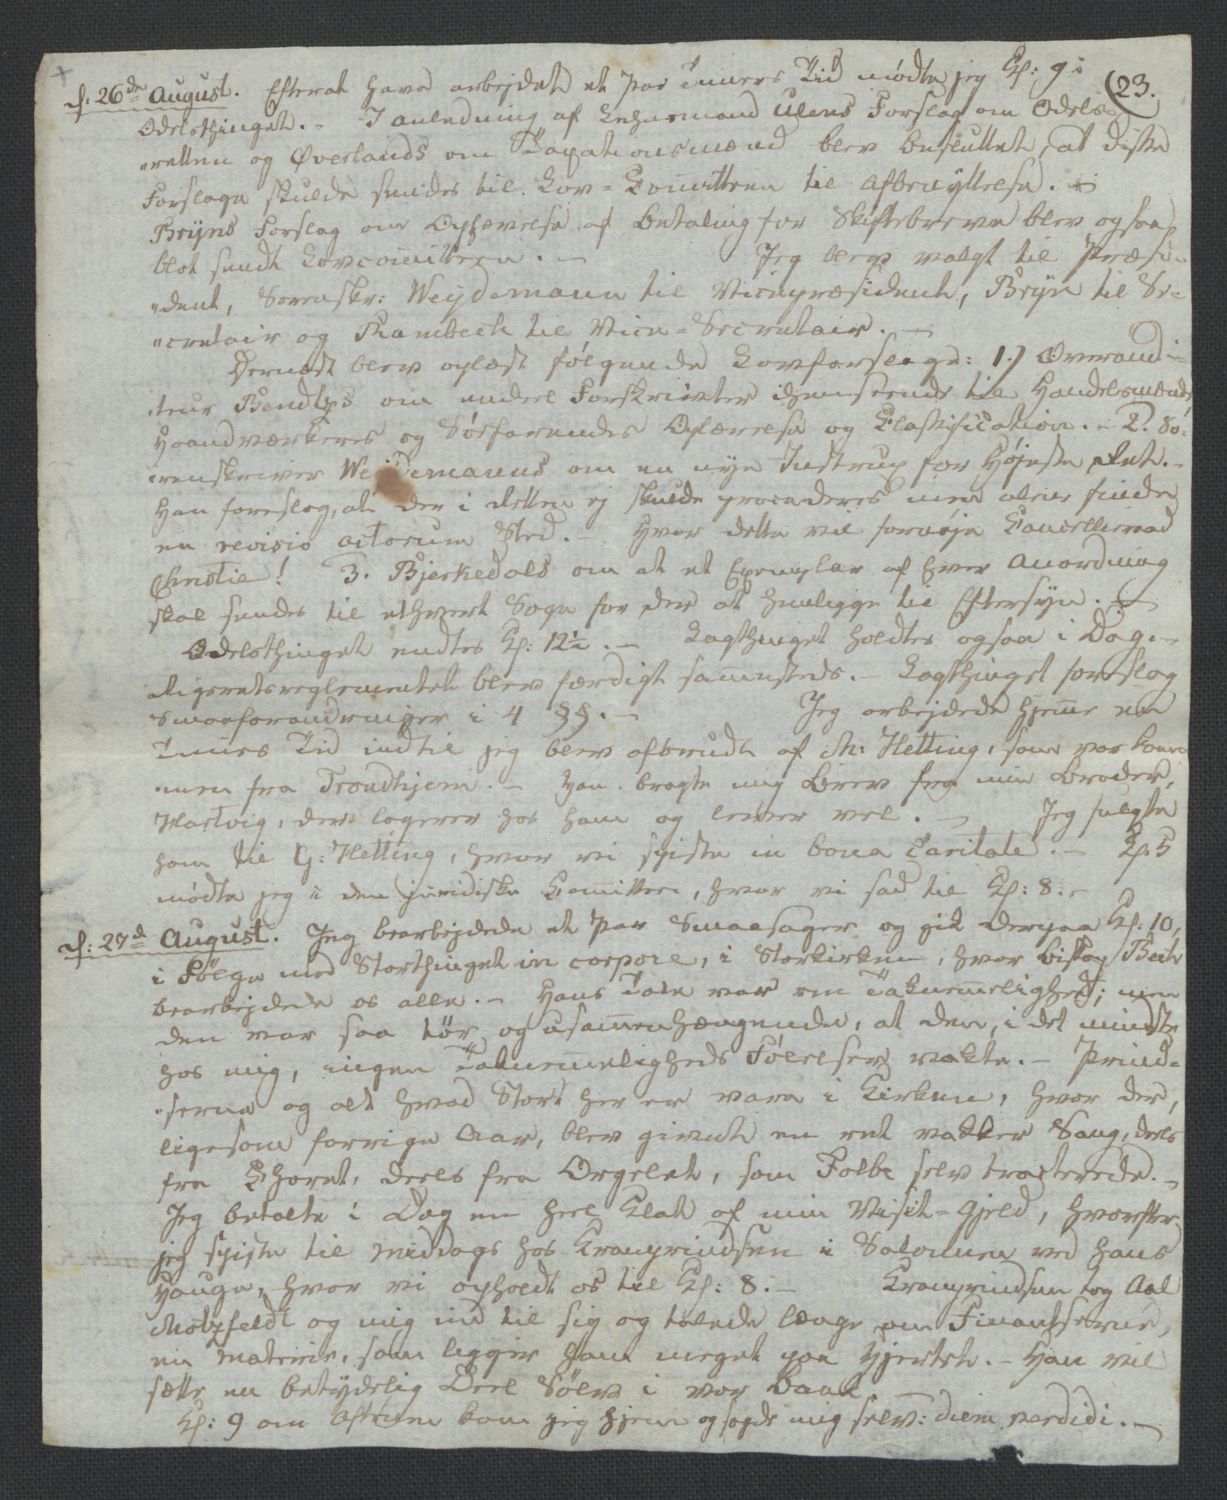 (23.
d: 26de August. Efterat have arbejdet et Par Timers Tid mødte jeg Kl: 9 i
Odelsthinget. - I anledning af Lehnsmand Ulens Forslag om Odels-
retten og Øverlands om Taxationsmænd blev besluttet, at disse
Forslage skulde sendes til Lov-Committeen til Afbenyttelse. -
Bryns Forslag om Ophævelse af Betaling for Skiftebreve blev ogsaa
blot sendt Lovcomitteen. - Jeg blev valgt til Præsi-
dent, Sorenskr: Weydemann til Vicepræsident, Bryn til Se-
cretair og Rambech til Vice-Secretair. -
Dernæst blev oplæst følgende Lovforslage: 1.) Overaudi-
teur Bendtzs om endeel Forskrivter henseende til Handelsmænds
Haandværkeres og Søefarendes Oplærelse og Classification. - 2. So-
renskriver Weydemanns om en nye Instrux for Højeste Ret. -
Han foreslog, at der i Retten ej skulde procederes men alene finde
en revisio actorum Sted. - Hvor dette vil fornøje Cancelliraad
Christie! 3. Bjerkedals om at et Exemplar af hver Anordning
skal sendes til ethvert Sogn for der at henligge til Eftersyn. -
Odelsthinget endtes Kl: 12½. - Lagthinget holdtes ogsaa i Dag. -
Rigsretsreglementet blev færdigt sammesteds. - Lagthinget foreslog
Smaaforandringer i 4 §§. - Jeg arbejdede hjemme en
Times Tid indtil jeg blev afbrudt af M: Hetting, som var kom-
men fra Trondhjem. - Han bragte mig Brev fra min Broder,
Hartvig, der logerer hos ham og lever vel. - Jeg fulgte
ham til G: Hetting, hvor vi spiste in bona caritate. - Kl. 5
mødte jeg i den juridiske Committee, hvor vi sad til Kl: 8. -
d: 27d August. Jeg bearbejdede et Par Smaasager og gik derpaa Kl: 10,
i Følge med Storthinget in corpore, i Storkirken, hvor Bisp Bech
bearbejdede os alle. - Hans Tale var om Taknemmelighed; men
den var saa tør og usammenhængende, at den, i det mindste
hos mig, ingen Taknemmeligheds Følelser vakte. - Prind-
serne og alt hvad Stort her er vare i Kirken, hvor der,
ligesom forrige Aar, blev givet en ret vakker Sang, deels
fra Choret, deels fra Orgelet, som Folbe selv tracterede. -
Jeg betalte i Dag en heel Klat af min Visit-Gjeld, hvorefter
jeg spiste til Middags hos Cronprindsen i Salonen ved hans
Hauge, hvor vi opholdt os til Kl: 8. - Cronprindsen tog Aal
Motzfeldt og mig ind til sig og talede længe om Finantserne,
en Materie, som ligger ham meget paa Hjertet. - Han vil
sætte en betydelig Deel Sølv i vor Bank.
Kl: 9 om Aftenen kom jeg hjem og sagde mig selv: diem perdidi. -